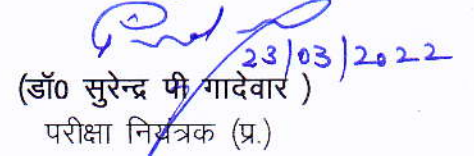 23/03/2022
(डॉ0 सुरेन्द्र पी गादेवार )
परीक्षा नियंत्रक (प्र.)